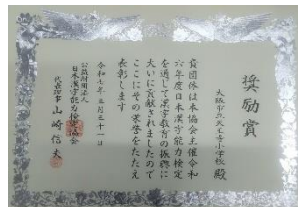 奨励賞
大阪市立天王寺小学校 殿
貴団体は本協会主催令和
六年度日本漢字能力検定
を通じて漢字教育の振興に
大いに貢献されましたので
ここにその栄誉をたたえ
表彰します
令和七年 三月三十一日
公益財団法人
日本漢字能力検定協会
代表理事 山崎信夫